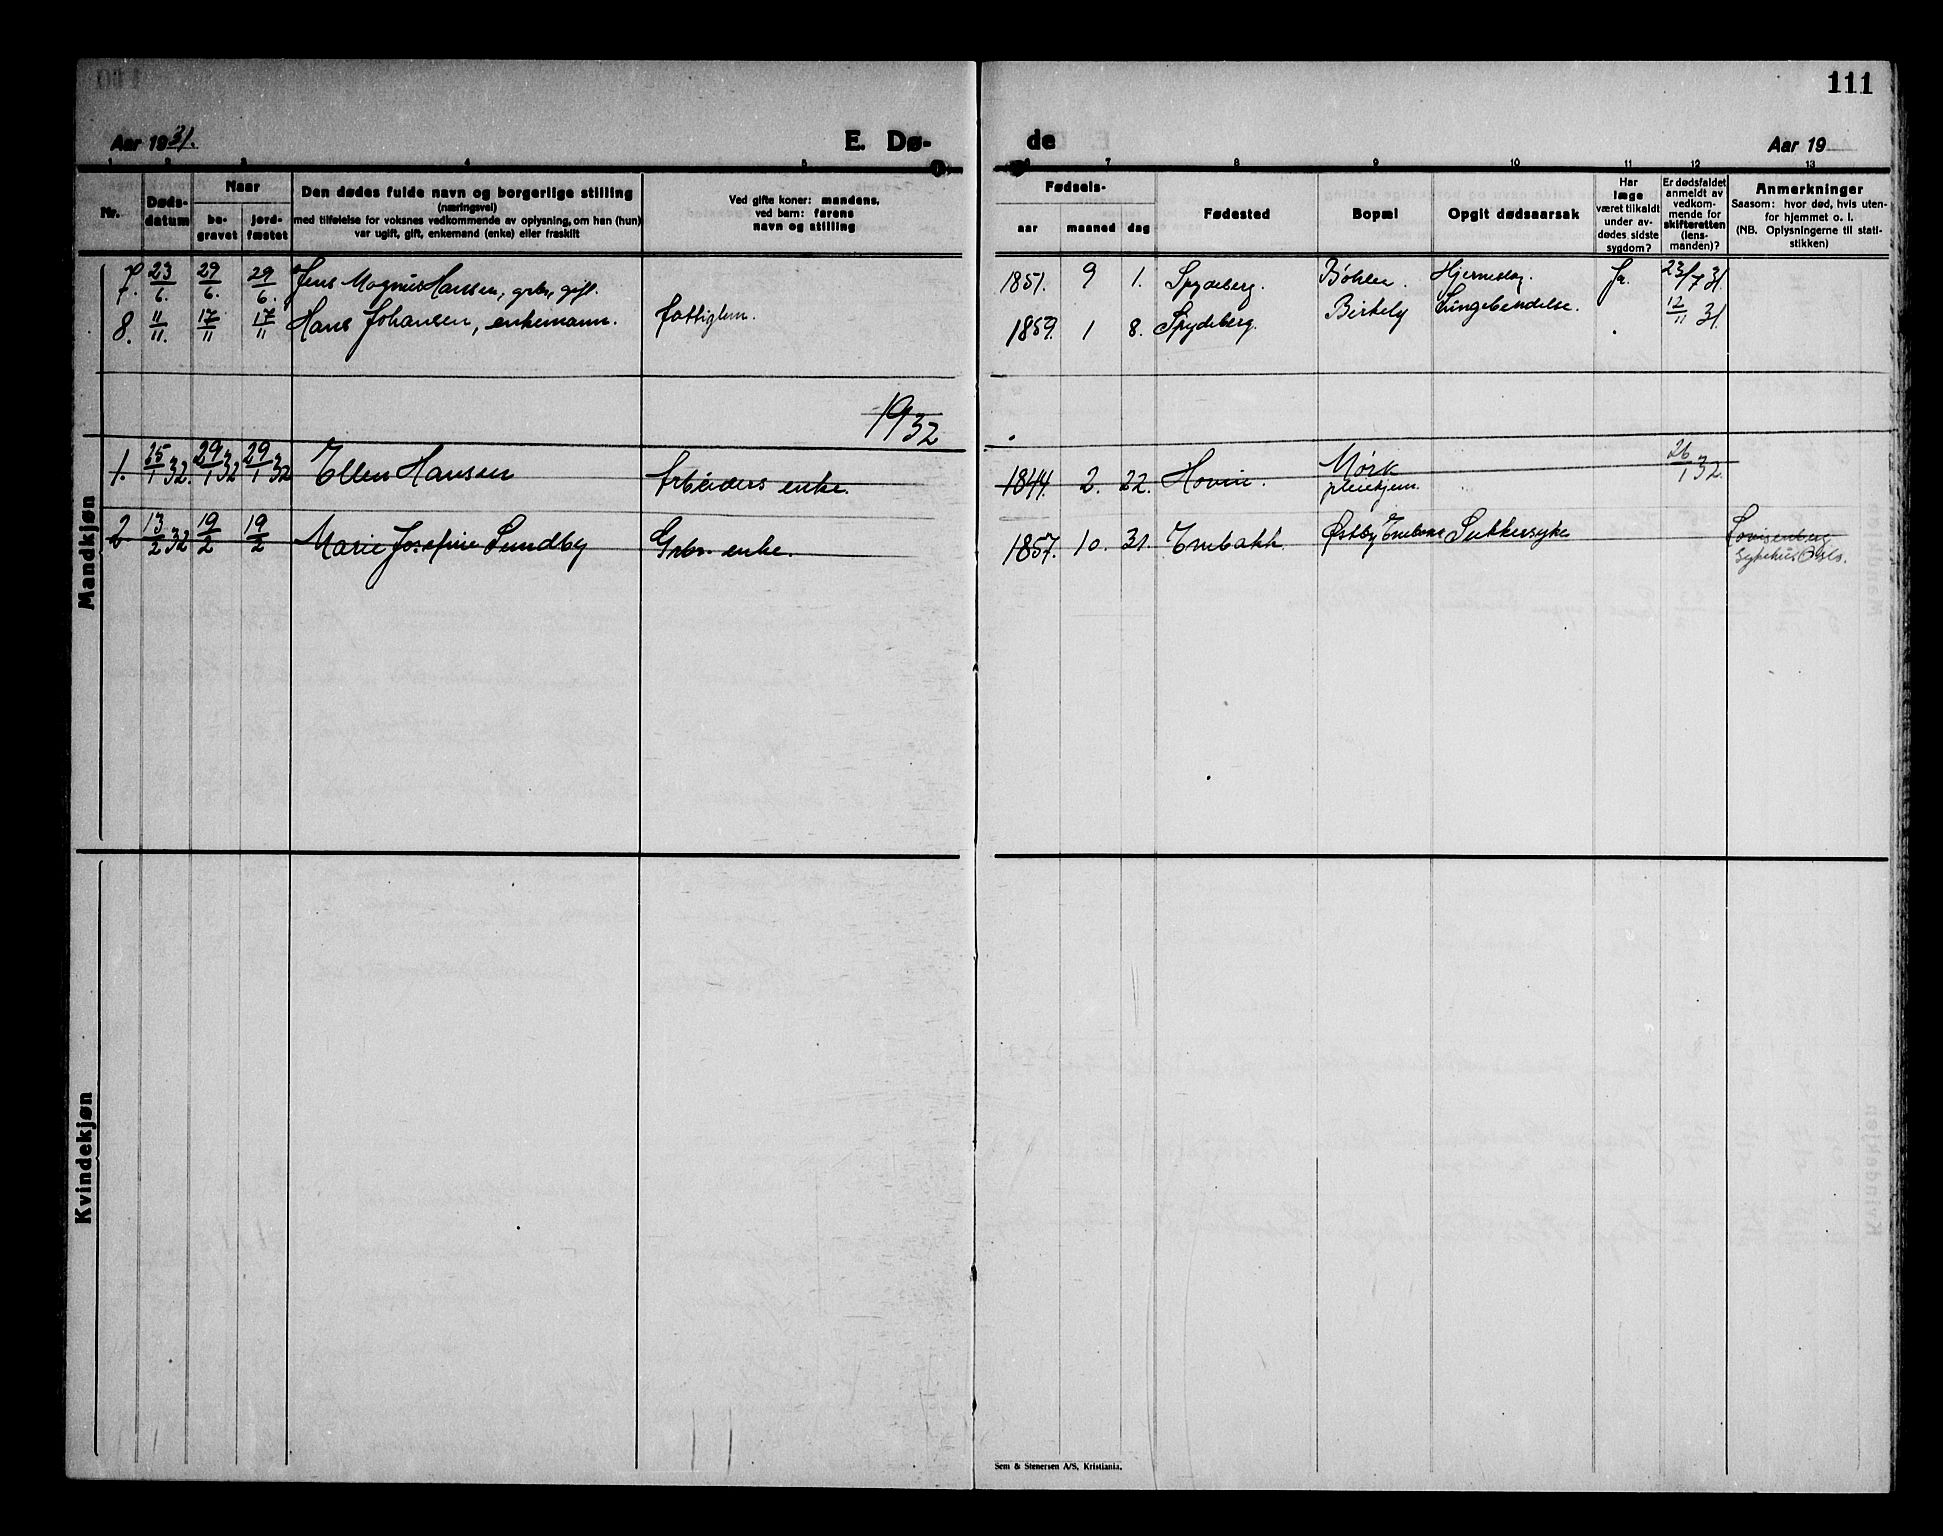 111
Aar 1931. E. Dø- de Aar 19
1 2 3 4 5 6 7 8 9 10 11 12 13
Nr.
Døds-
datum
Naar
be-
gravet
jord-
fæstet
Den dødes fulde navn og borgerlige stilling
(næringsvei)
med tilføielse for voksnes vedkommende av oplysning, om han (hun)
var ugift, gift, enkemand (enke) eller fraskilt
Ved gifte koner: mandens,
ved barn: farens
navn og stilling
Fødsels-
aar maaned dag
Fødested
Bopæl
Opgit dødsaarsak
Har
læge
været tilkaldt
under av-
dødes sidste
sygdom?
Er dødsfaldet
anmeldt av
vedkom-
mende for
skifteretten
(lens-
manden)?
Anmerkninger
Saasom: hvor død, hvis uten-
for hjemmet o. l.
(NB. Oplysningerne til stati-
stikken)
Mandkjøn
7. 23/6. 29/6. 29/6. Jens Magnus Hansen, grbr, gift. 1851. 9 1. Spydeberg. Bøhler. Hjerneslag. Ja. 23/7 31.
8. 11/11. 17/11 17/11 Hans Johansen, enkemann. fattiglem. 1859. 1 8. Spydeberg. Birkely Lungebendelse. 12/11 31.
1932
1. 25/1 32. 29/1 32 29/1 32 Ellen Hansen Arbeiders enke. 1844. 2. 22. Hovin. Mørk 26/1 32.
pleiehjem.
2 13/2 32 19/2 19/2 Marie Josefine Sundby Grbr. enke. 1857. 10. 31. Enebakk. Østby Enebakk Sukkersyke Lovisenberg
Sykehus Oslo.
Kvindekjøn
Sem & Stenersen A/S, Kristiania.